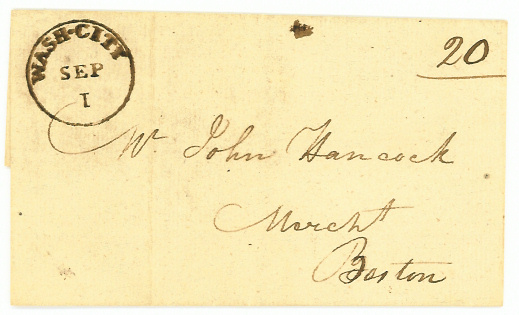 WASH-CITY
SEP
1
20
Mr John Hancock
Mercht
Boston